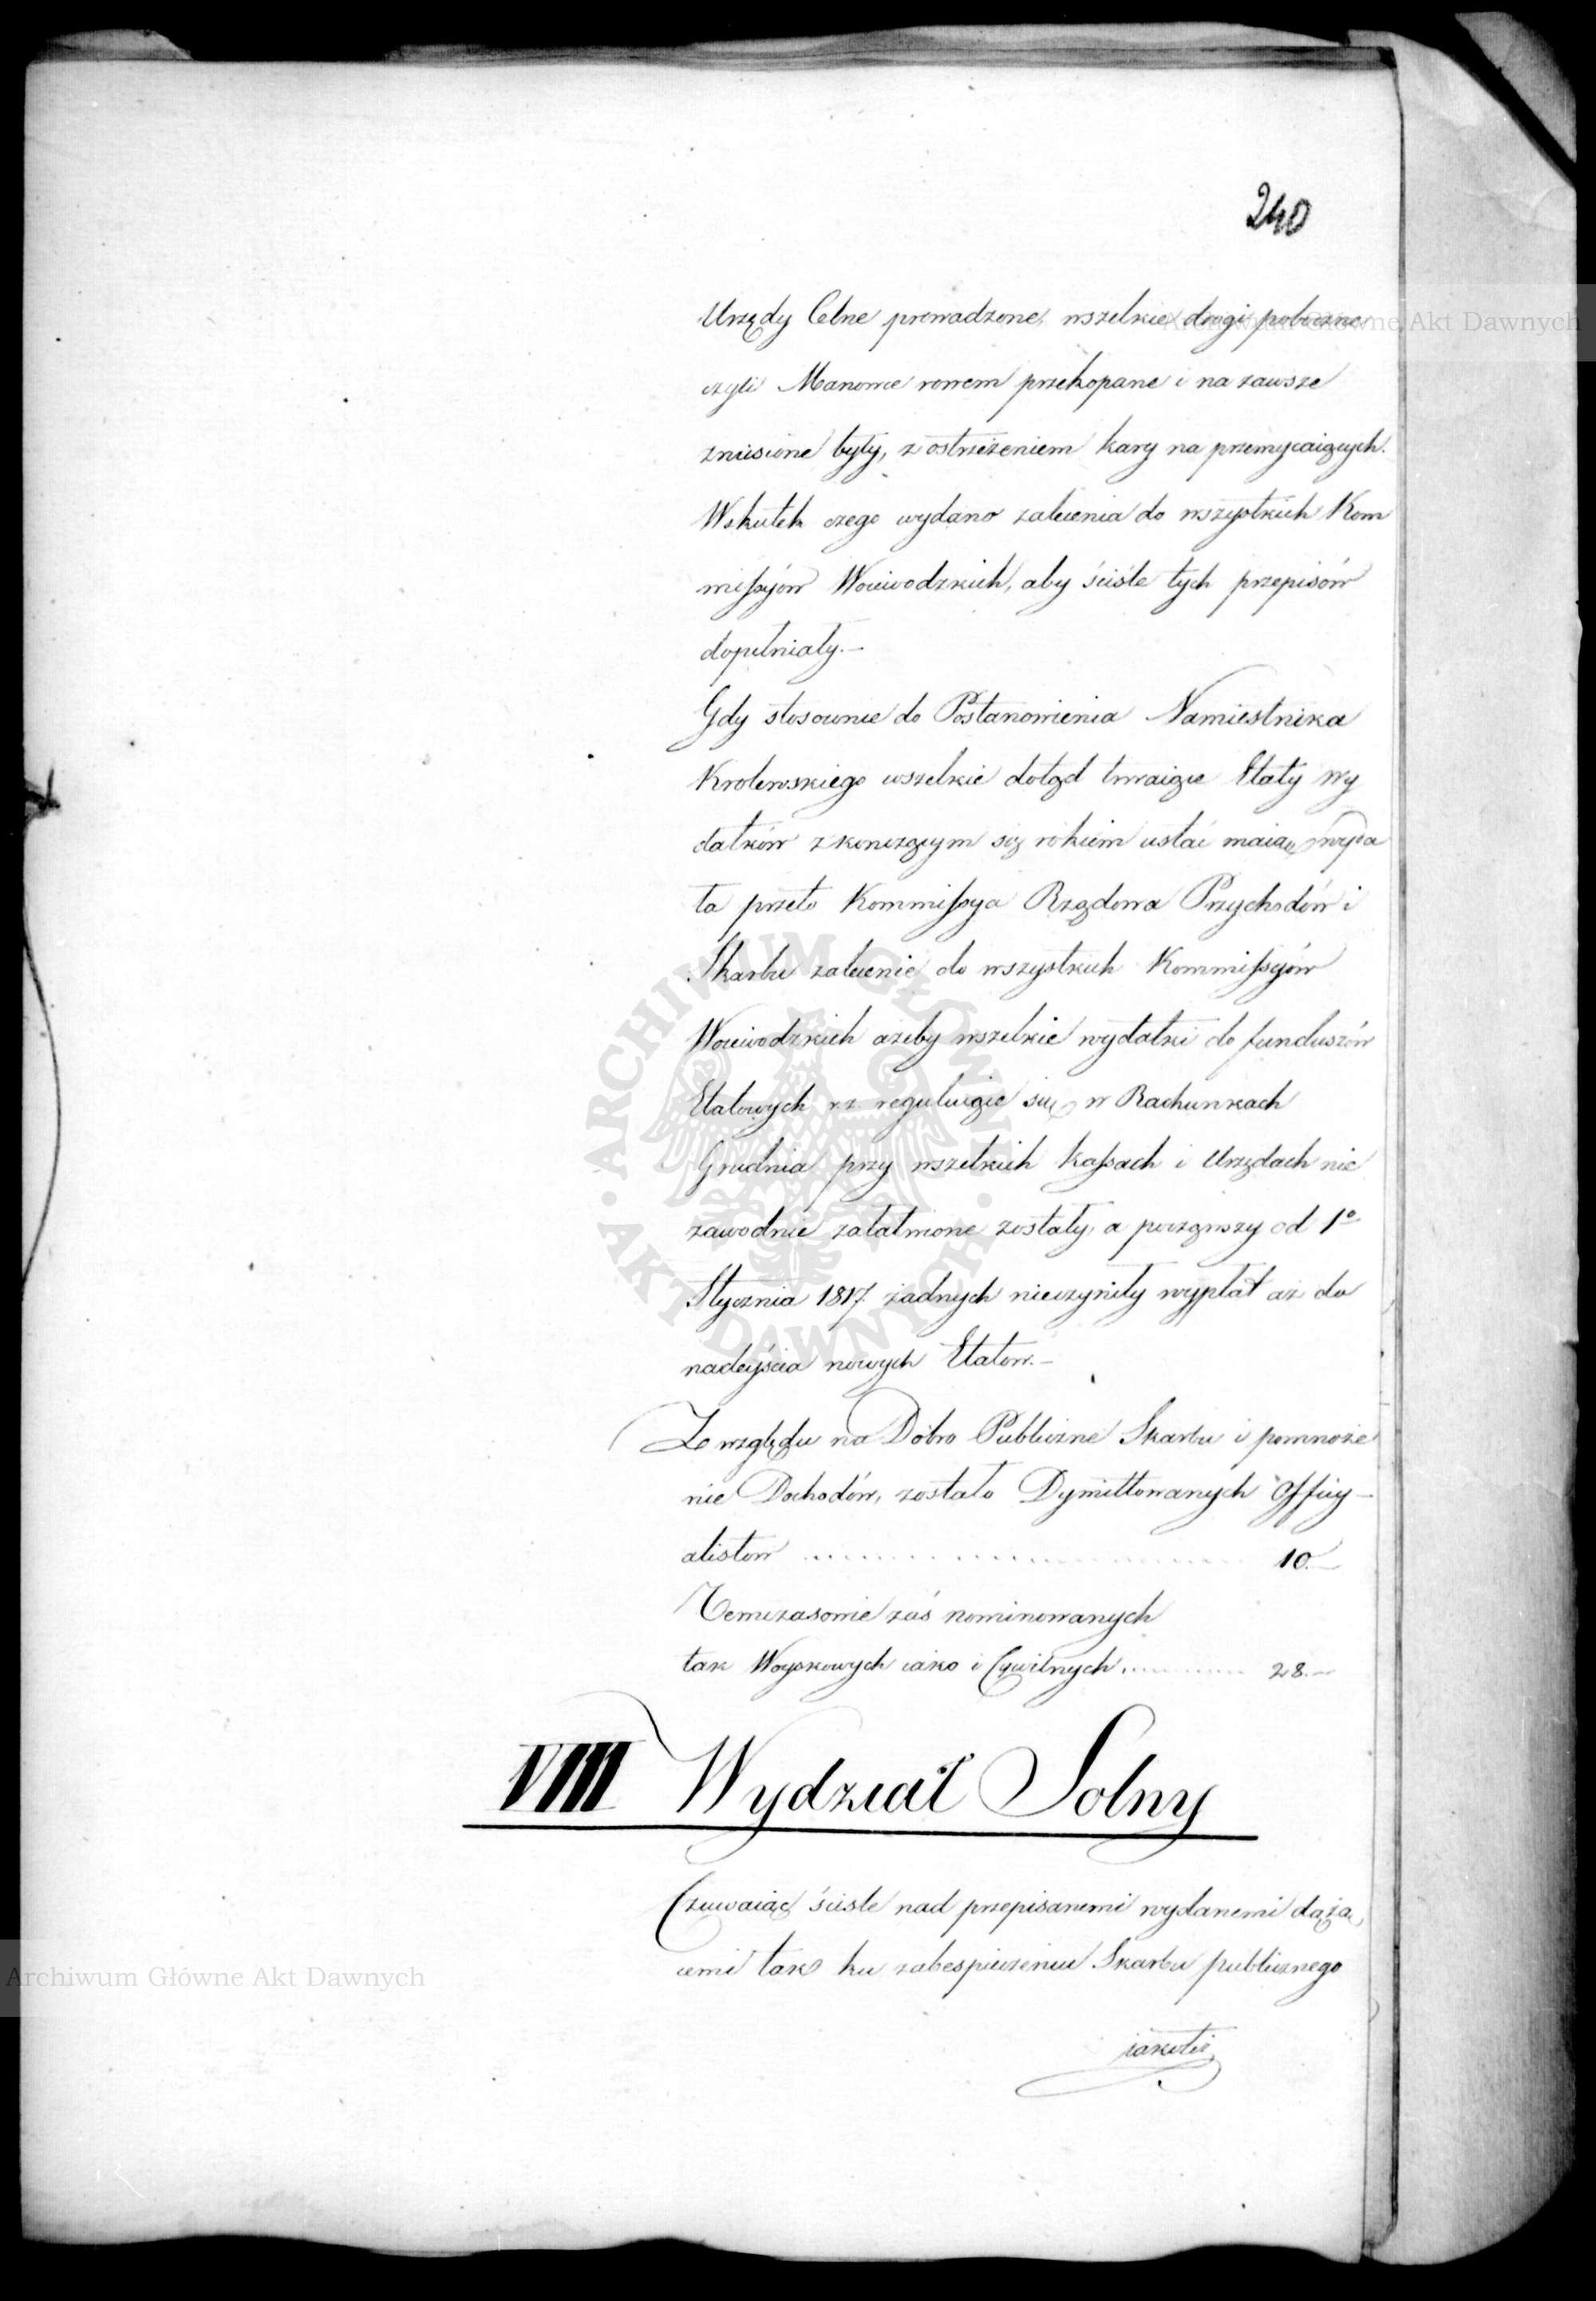 240
Urzędy Celne prowadzone, wszelkie drogi poboczne
czyli Manowce rowem przekopane i na zawsze
zniesione były, z ostrzeżeniem kary na przemycaiących.
Wskutek czego wydano zalecenia do wszystkich Kom
missyów Woiewodzkich, aby ściśle tych przepisów
dopełniały.—
Gdy stosownie do Postanowienia Namiestnika
Krolewskiego wszelkie dotąd trwaiące Etaty Wy
datków z konczącym się rokiem ustać maią, wyda
ła przeto Kommissya Rządowa Przychodów i
Skarbu zalecenie do wszystkich Kommissyów
Woiewodzkich ażeby wszelkie wydatki do funduszów
Etatowych reguluiące się w Rachunkach
Grudnia przy wszelkich kassach i Urzędach nie
zawodnie załatwione zostały, a począwszy od 1º
Stycznia 1817. żadnych nieczyniły wypłat aż do
nadeyścia nowych Etatow.—
Ze względu na Dobro Publiczne Skarbu i pomnoże
nie Dochodów, zostało Dymittowanych Officy—
alistow ............ 10.—
Temczasowie zaś nominowanych
tak Woyskowych iako i Cywilnych ............ 28.—
VIII Wydział Solny
Czuwaiąc ściśle nad przepisanemi wydanemi dążą,
cemi tak ku zabespieczeniu Skarbu publicznego
iakoteż
Archiwum Główne Akt Dawnych
Archiwum Główne Akt Dawnych
ARCHIWUM GŁÓWNE · AKT DAWNYCH ·